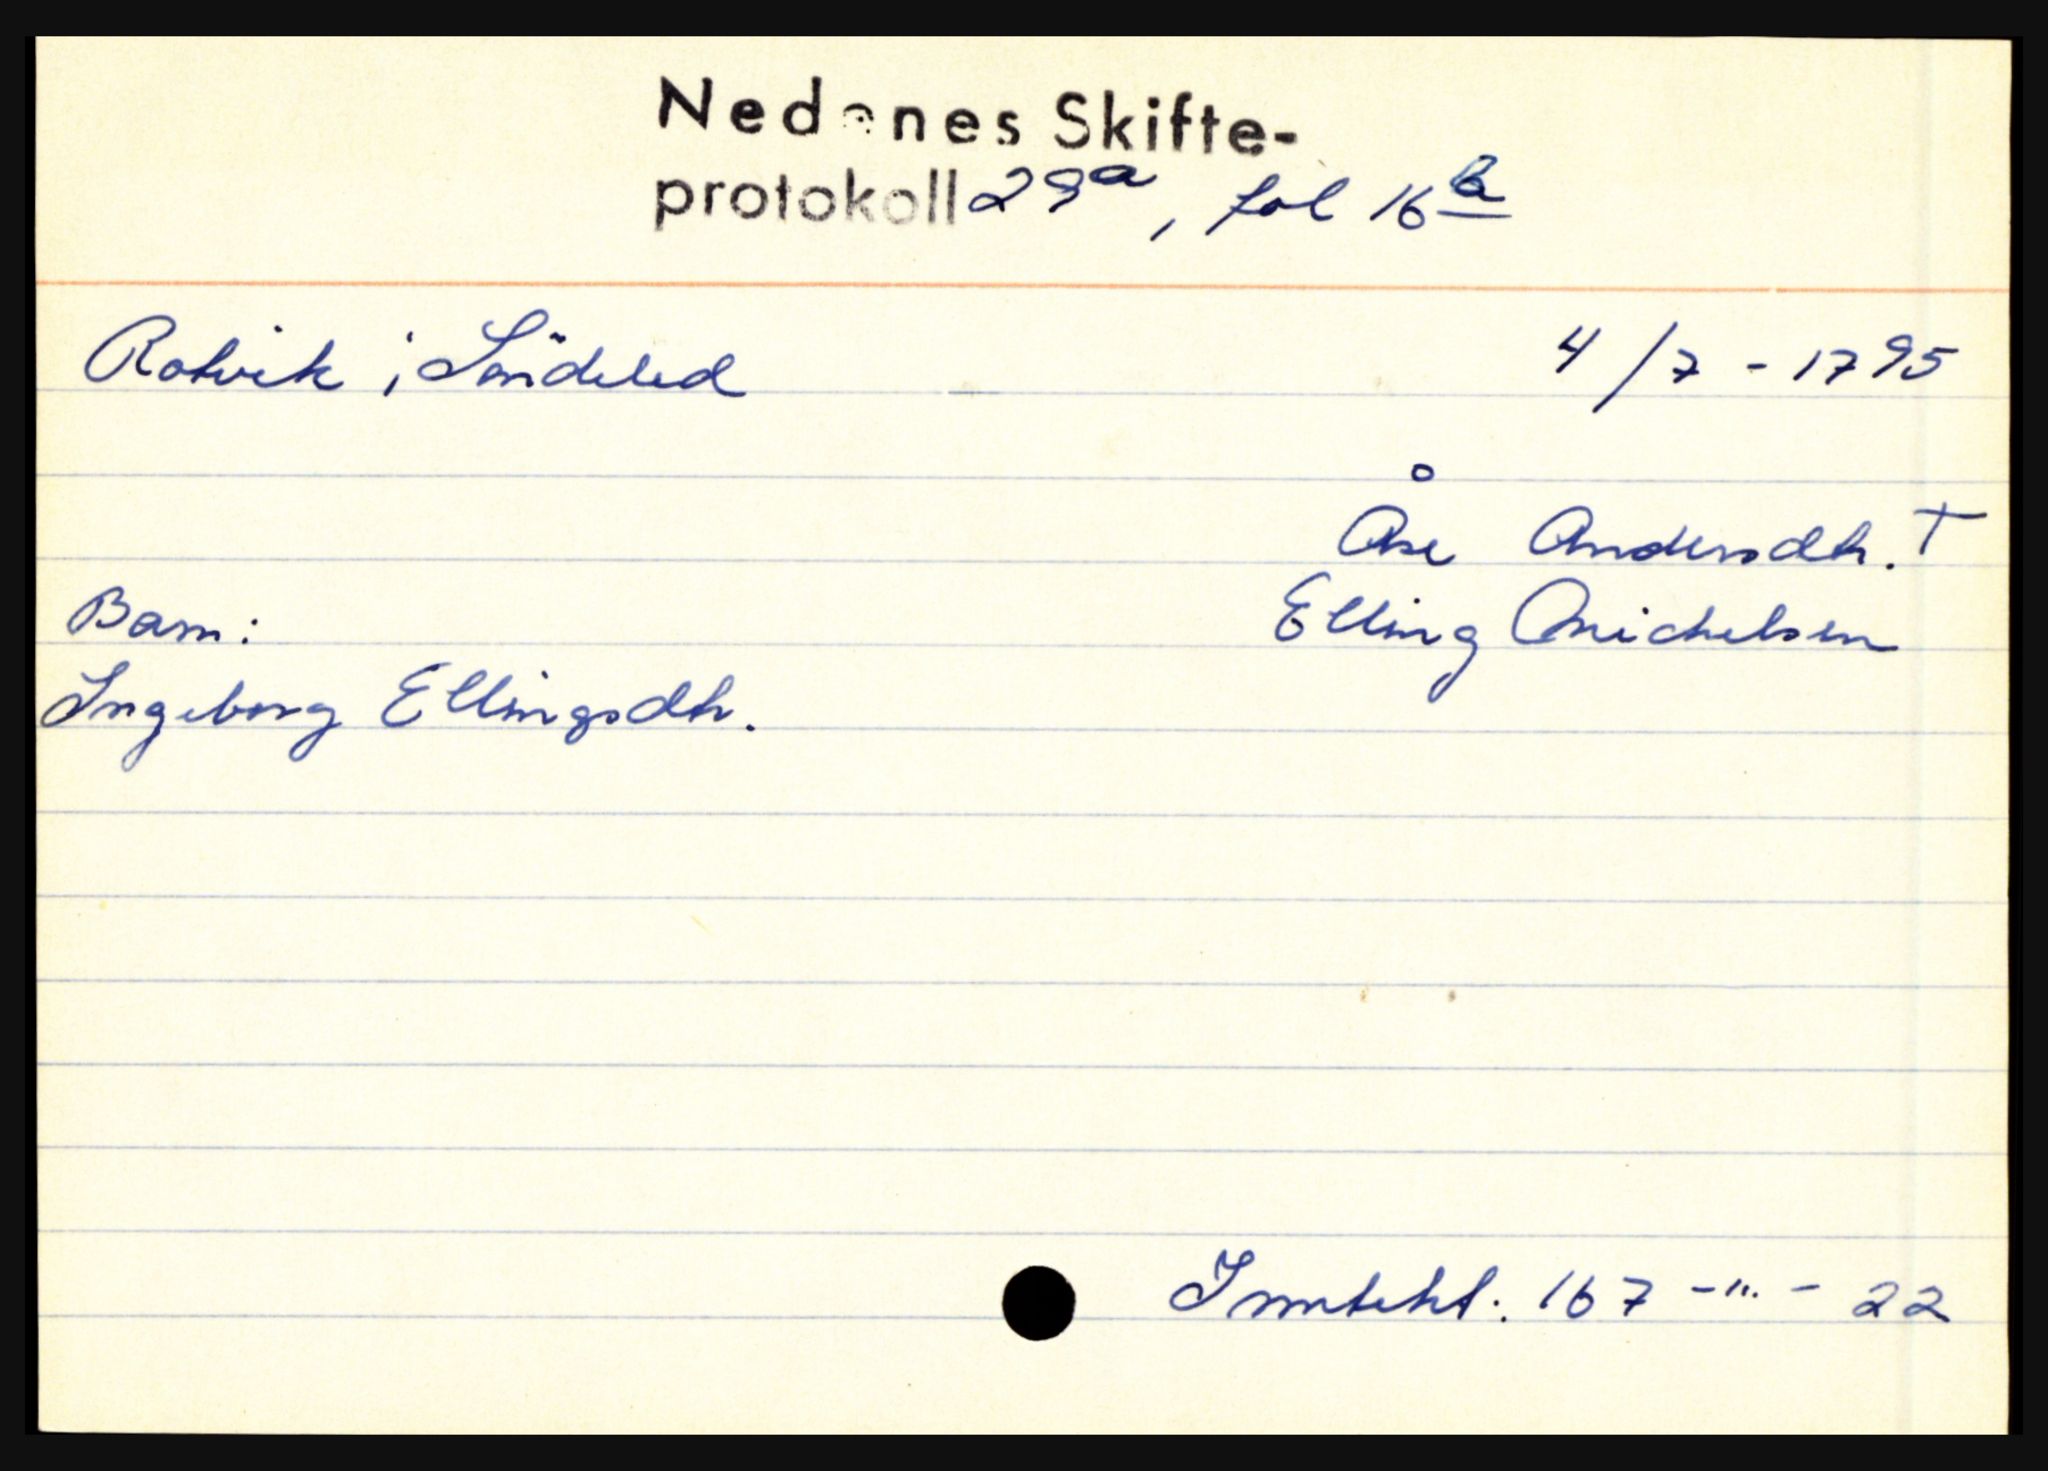 Nedenes Skifte-
protokoll 29a, fol 16b
Rotvik i Söndeled 4/7 - 1795
Åse Andersdtr. †
Barn: Elling Michelsen
Ingeborg Ellingsdtr.
Inntekt. 167 -"- 22